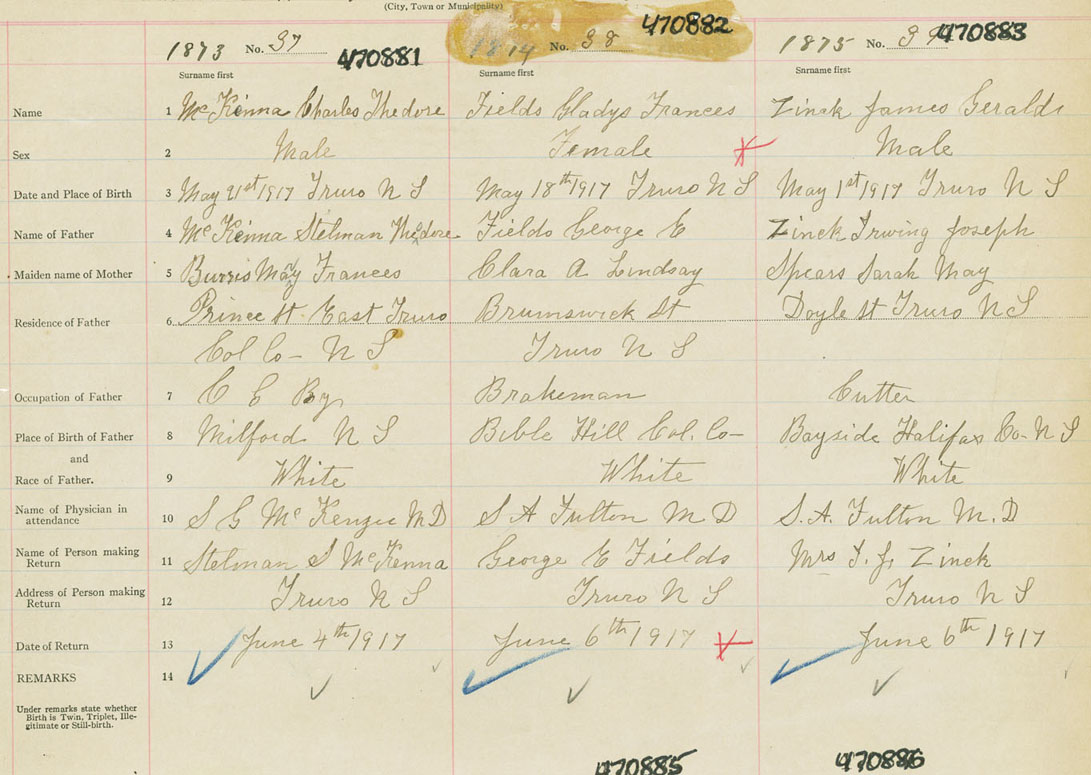 (City, Town or Municipality)
1873 No. 37 470881 1874 No. 38 470882 1875 No. 39 470883
Surname first Surname first Surname first
Name 1 McKenna Charles Thedore Fields Gladys Frances Zinck James Gerald
Sex 2 Male Female Male
Date and Place of Birth 3 May 21st 1917 Truro N S May 18th 1917 Truro N S May 1st 1917 Truro N S
Name of Father 4 McKenna Stelman Theodore Fields George E Zinck Irwing Joseph
Maiden name of Mother 5 Burris May Frances Clara A Lindsay Spears Sarah May
Residence of Father 6 Prince St. East Truro Brumswick St Doyle St Truro N S
Col Co - N S Truro N S
Occupation of Father 7 Brakeman Cutter
Place of Birth of Father 8 Milford N S Bible Hill Col. Co - Bayside Halifax Co - N S
and
Race of Father. 9 White White White
Name of Physician in
attendance 10 S G McKenzie M D S A Fulton M D S. A. Fulton M. D
Name of Person making
Return 11 Stelman S McKenna George E Fields Mrs I. J. Zinck
Address of Person making
Return 12 Truro N S Truro N S Truro N S
Date of Return 13 June 4th 1917 June 6th 1917 June 6th 1917
REMARKS 14
Under remarks state whether
Birth is Twin, Triplet, Ille-
gitimate or Still-birth.
470885 470886